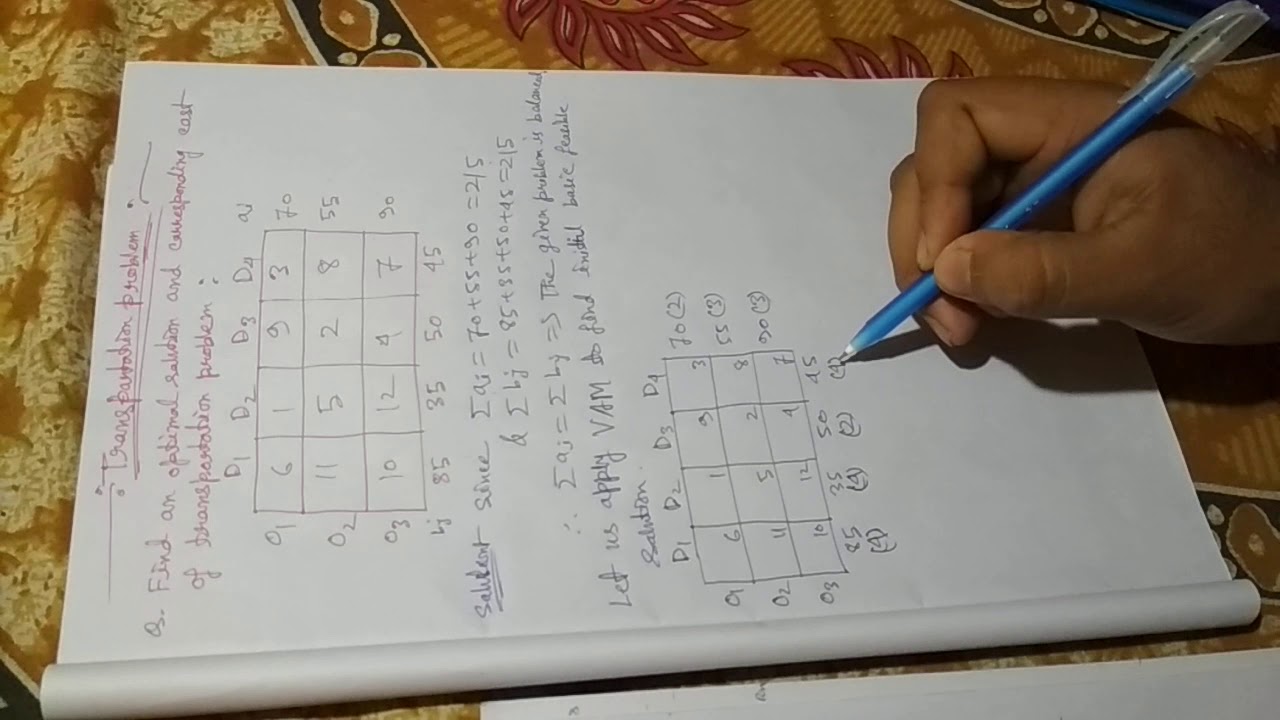 Transportation problem :
Q. Find an optimal solution and corresponding cost
of transportation problem :
D1 D2 D3 D4 ai
O1 6 1 9 3 70
O2 11 5 2 8 55
O3 10 12 4 7 90
bj 85 35 50 45
Solution: Since Σai = 70+55+90 = 215
& Σbj = 85+35+50+45 = 215
∴ Σai = Σbj => The given problem is balanced
Let us apply VAM to find initial basic feasible
solution.
D1 D2 D3 D4
O1 6 1 9 3 70(2)
O2 11 5 2 8 55(3)
O3 10 12 4 7 90(3)
85 35 50 45
(4) (4) (2) (4)